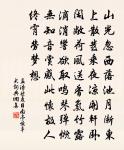 山光忽西落池月漸東
上散髮乘夜涼開軒卧
閑敞荷風送香氣竹露
滴清響欲取鳴琴彈恨
無知音賞感此懷故人
終宵勞夢想
孟浩然夏日南亭懷辛
大